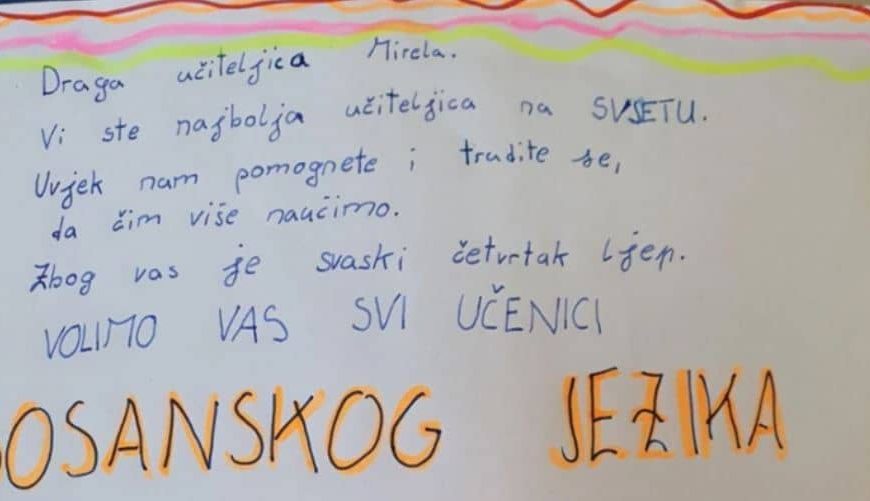 Draga učiteljica Mirela.
Vi ste najbolja učiteljica na SVJETU.
Uvjek nam pomognete i trudite se,
da čim više naučimo.
Zbog vas je svaski četvrtak ljep.
VOLIMO VAS SVI UČENICI
BOSANSKOG JEZIKA